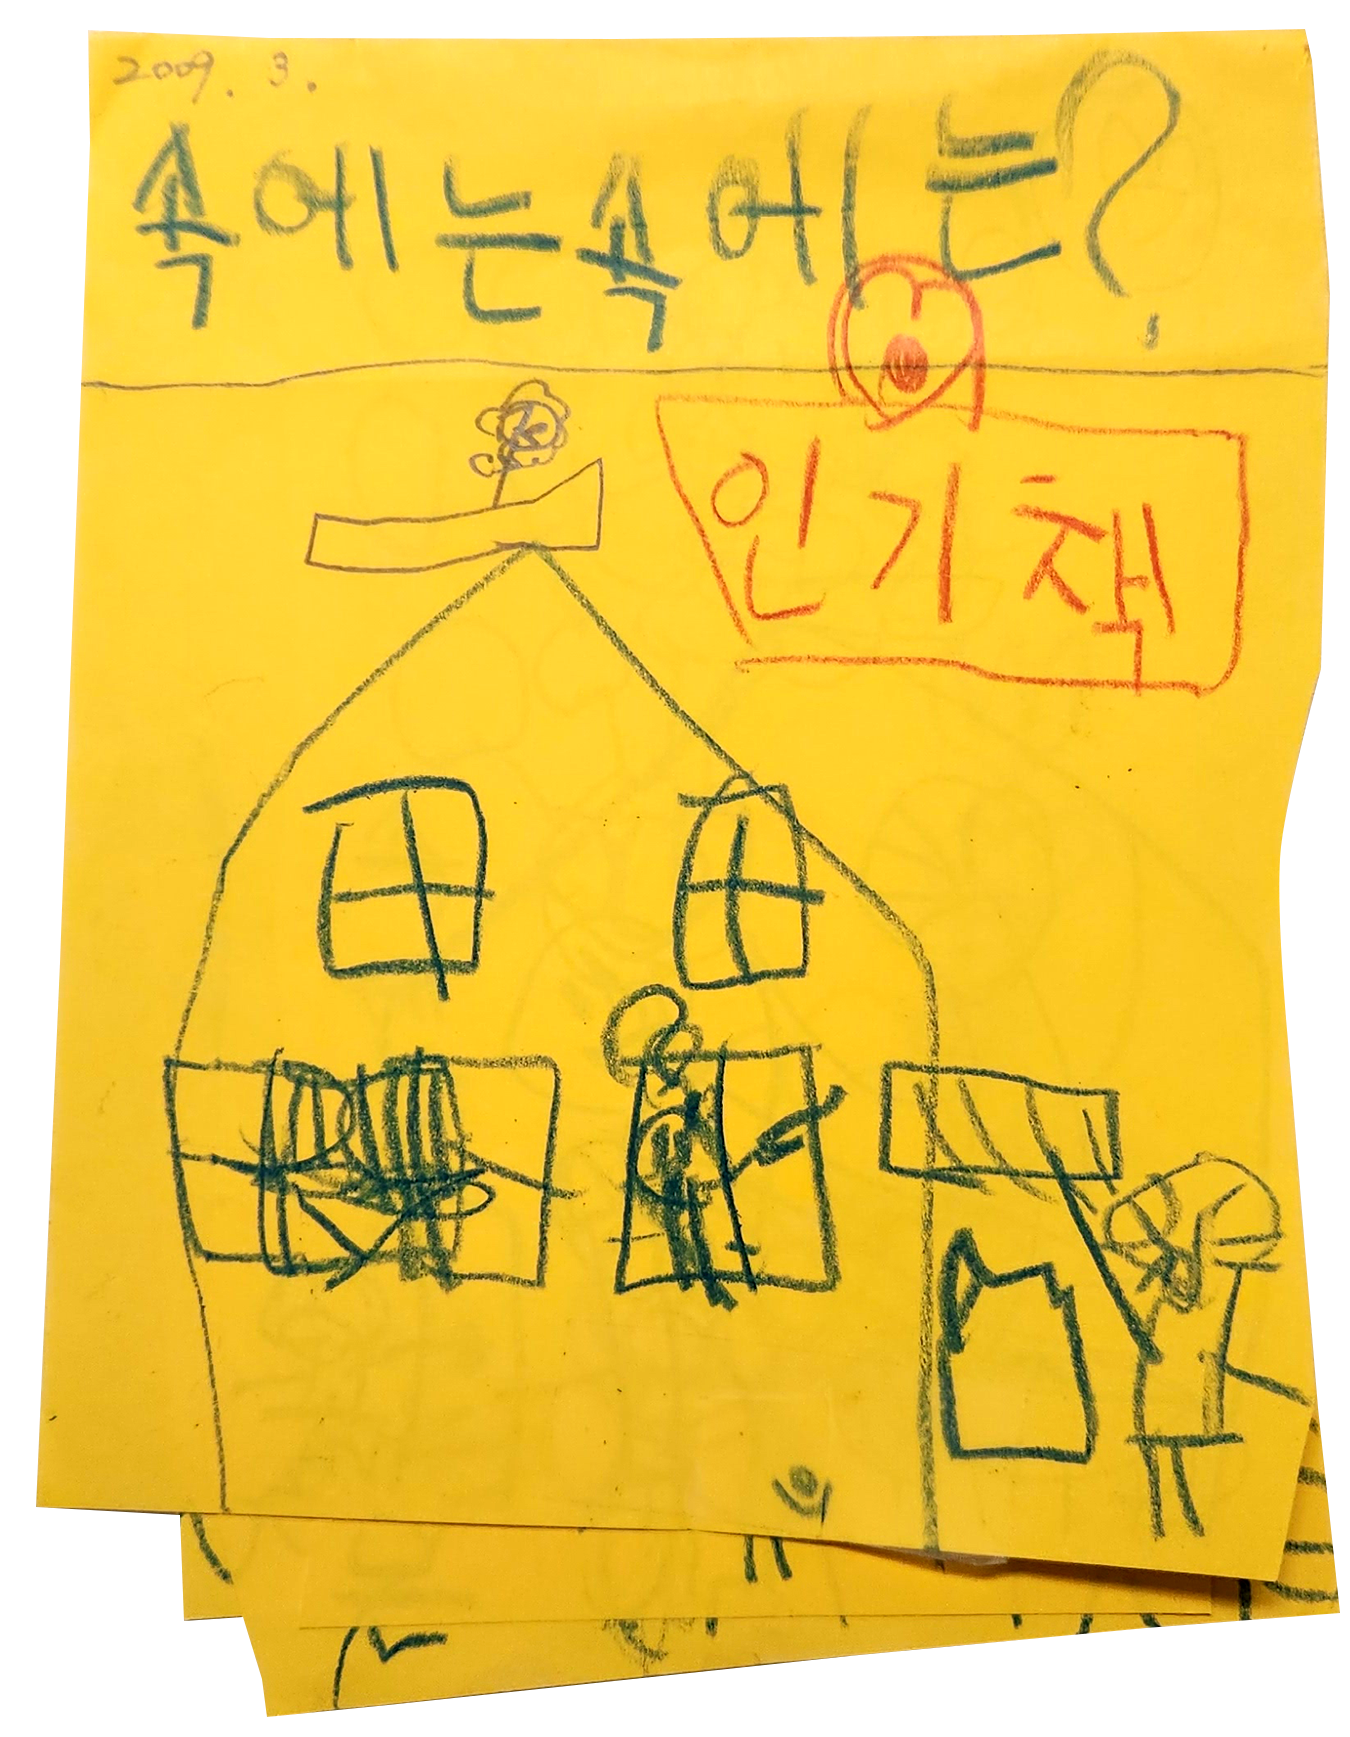 2009. 3.
속에는속에는?
인기책